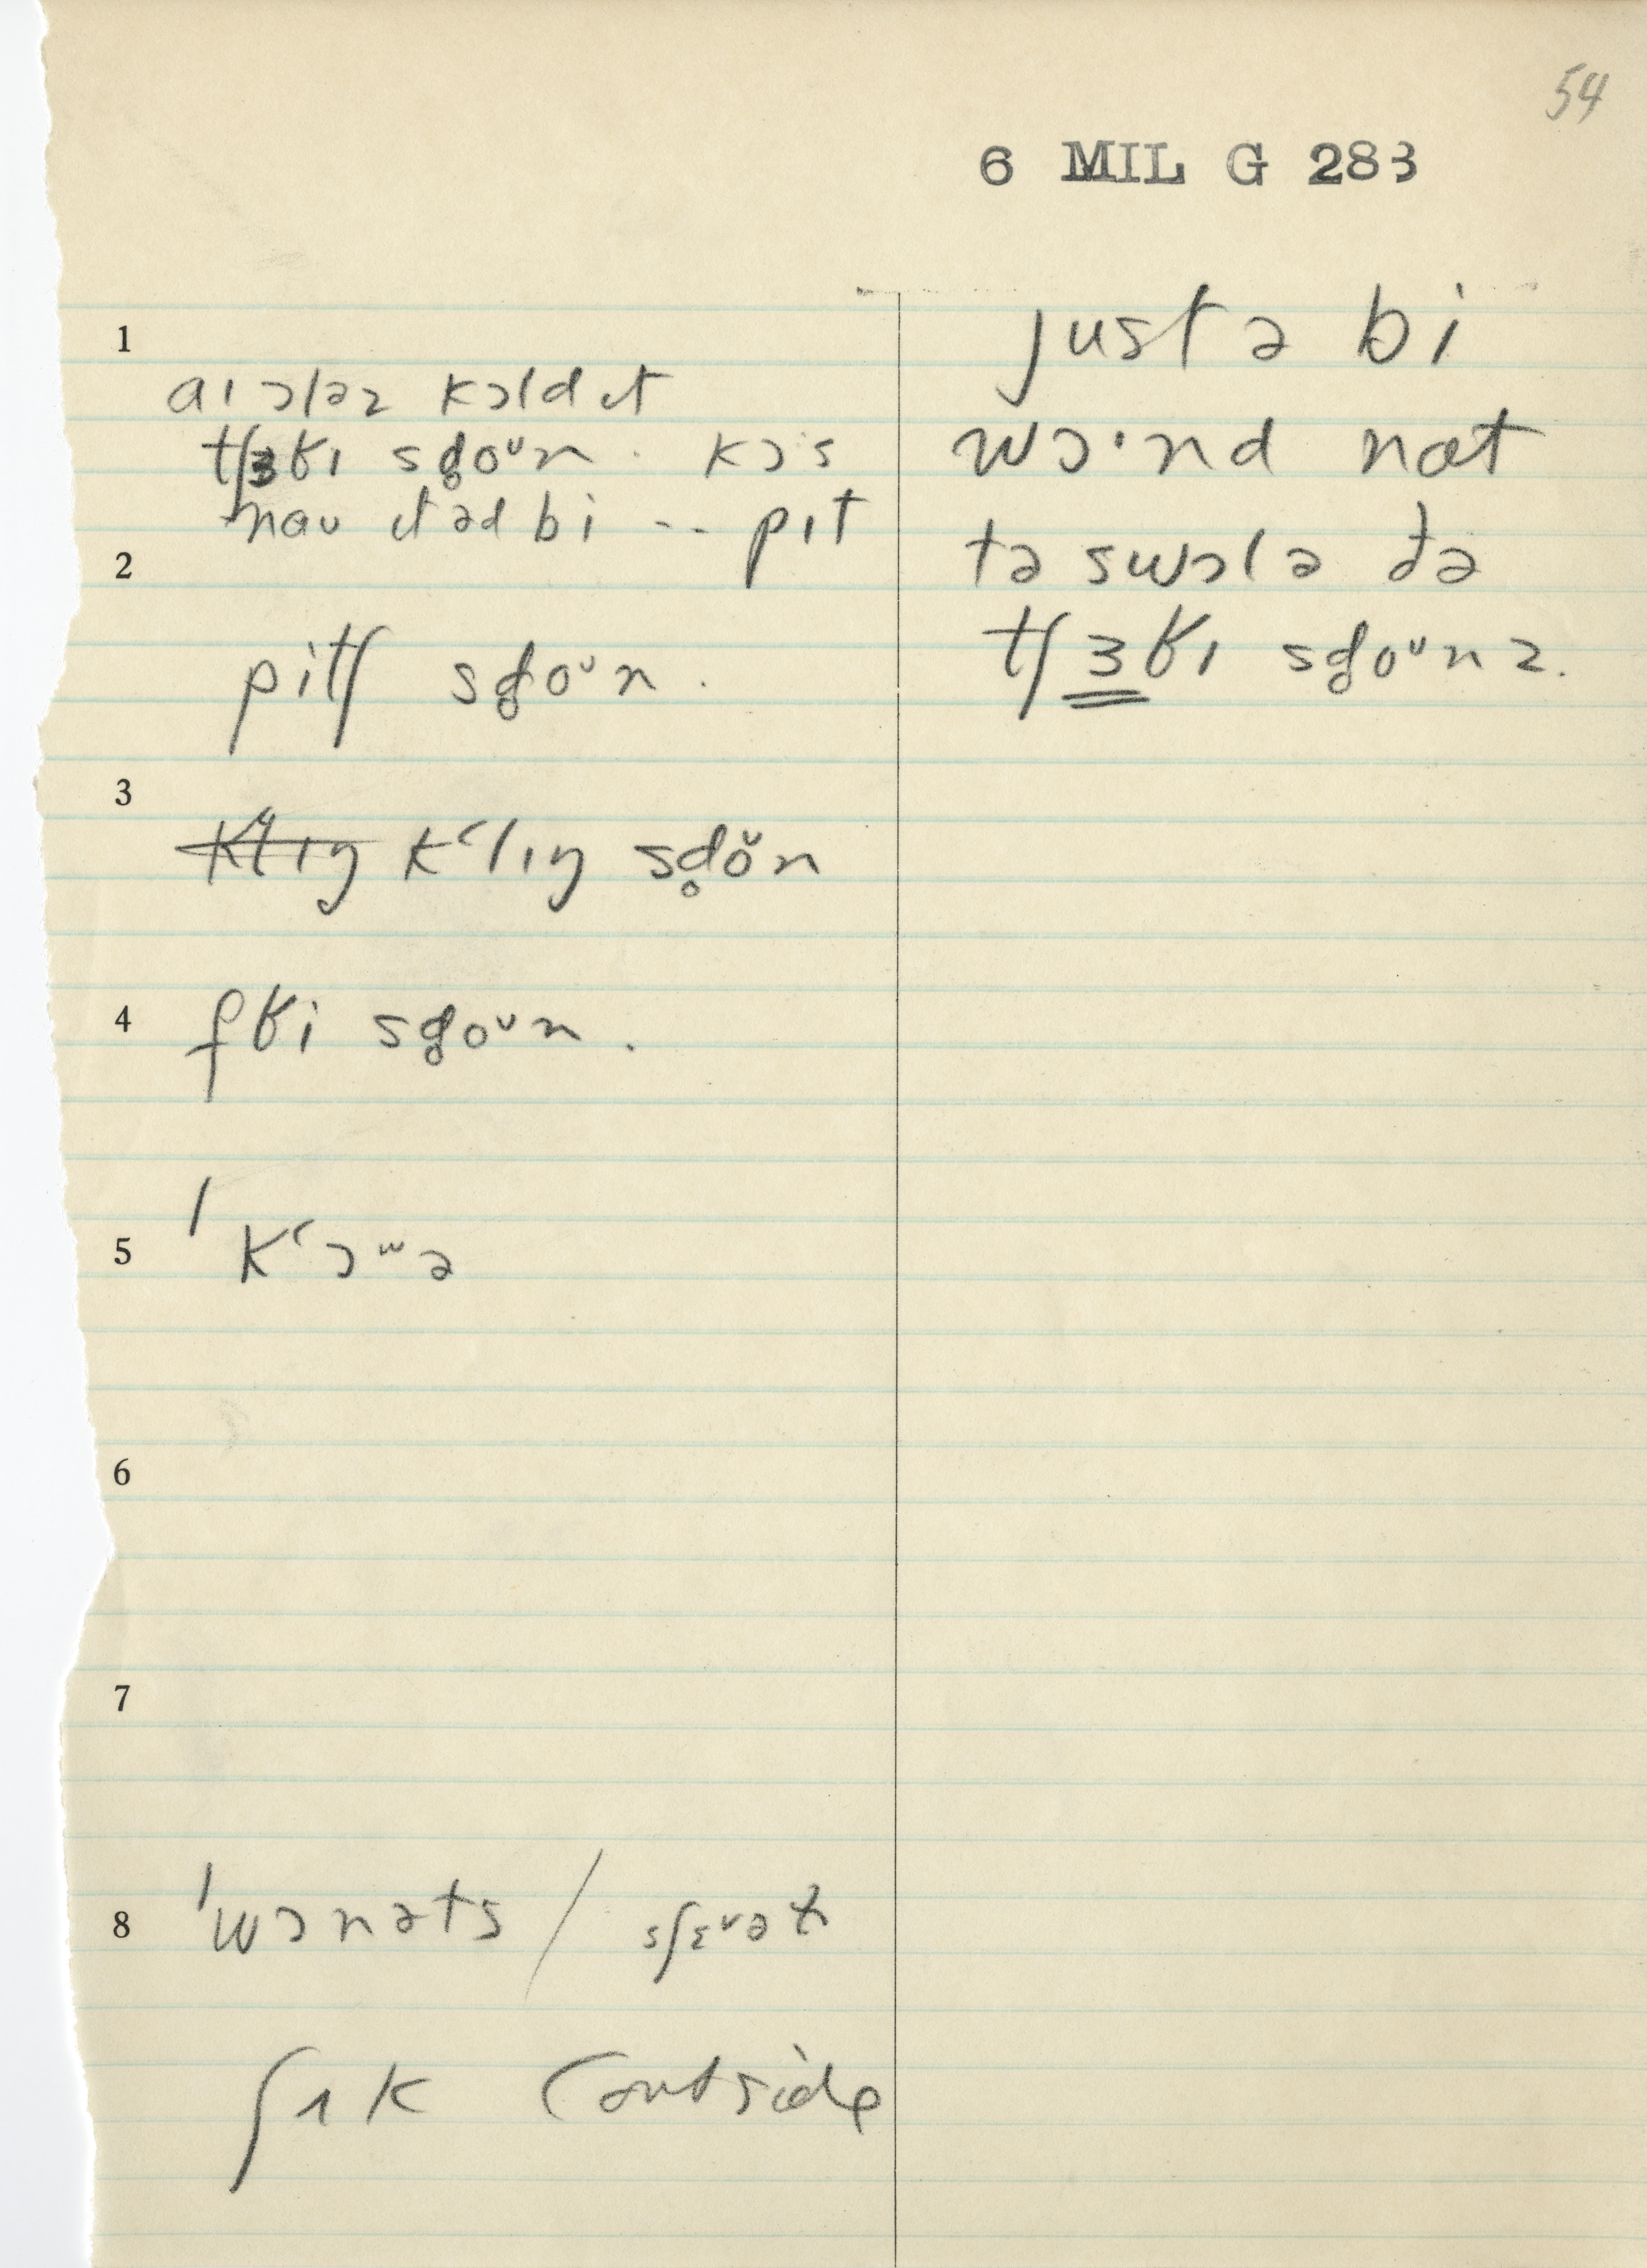 54
6 MIL G 283
1
aɪ ɔləz kɔld ɪt
tʃɜʁɪ sd̥oᵘn. kɔ's
nɑu ɪt əd bi -- pɪt
2
pitʃ sd̥oᵘn.
3
k‘lɪŋ sd̥ŏn
4
fʁi sd̥oᵘn.
5
ˈk‘ɔʷə
6
7
8
ˈwɔnəts /
ʃʌk (outside
just ə bi
wɔ·nd nɑt
tə swɔlə ðə
tʃɜʁɪ sd̥oᵘnz.